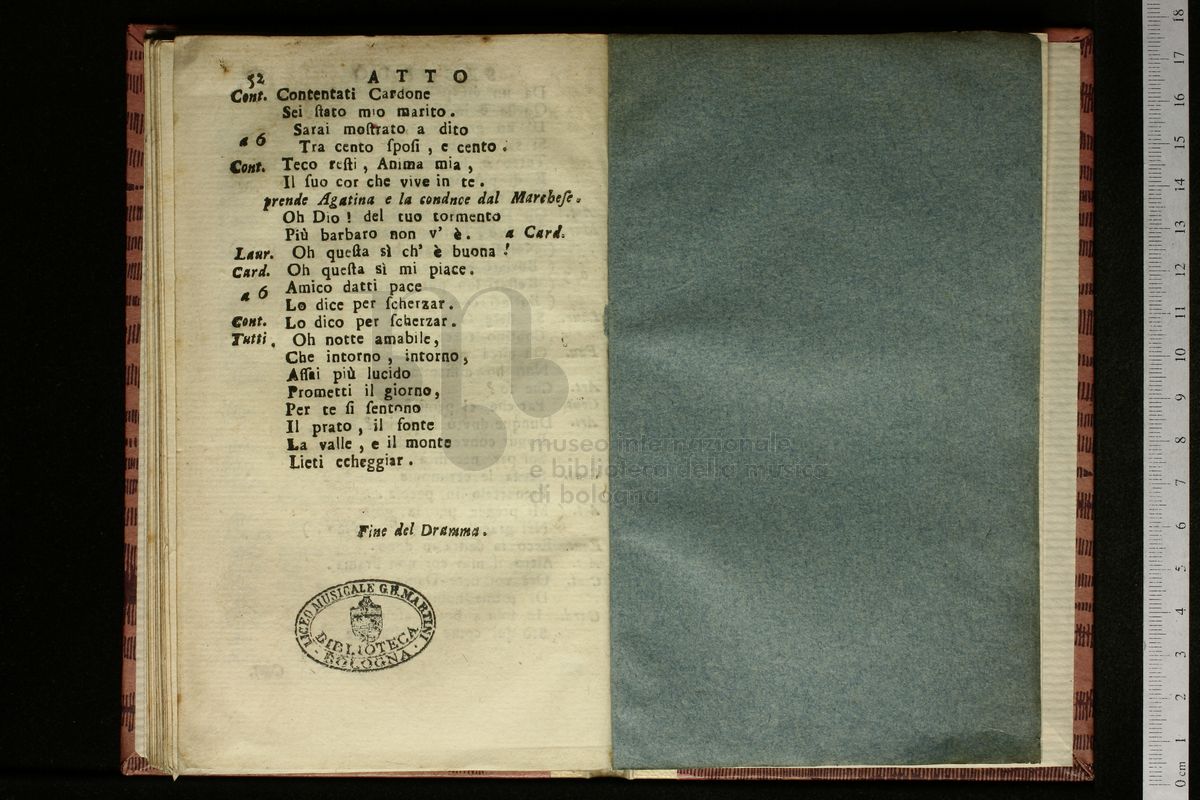 52 ATTO
Cont. Contentati Cardone
Sei ſtato mio marito.
Sarai moſtrato a dito
a 6
Tra cento ſpoſi, e cento.
Cont. Teco reſti, Anima mia,
Il ſuo cor che vive in te.
prende Agatina e la conduce dal Marcheſe.
Oh Dio! del tuo tormento
Più barbaro non v' è. a Card.
Laur. Oh queſta sì ch' è buona!
Card. Oh queſta sì mi piace.
a 6 Amico datti pace
Lo dice per ſcherzar.
Cont. Lo dico per ſcherzar.
Tutti. Oh notte amabile,
Che intorno, intorno,
Aſſai più lucido
Prometti il giorno,
Per te ſi ſentono
Il prato, il fonte
La valle, e il monte
Lieti echeggiar.
Fine del Dramma.
LICEO MUSICALE G.B. MARTINI
BIBLIOTECA
BOLOGNA
museo internazionale
e biblioteca della musica
di bologna
0 cm 1 2 3 4 5 6 7 8 9 10 11 12 13 14 15 16 17 18